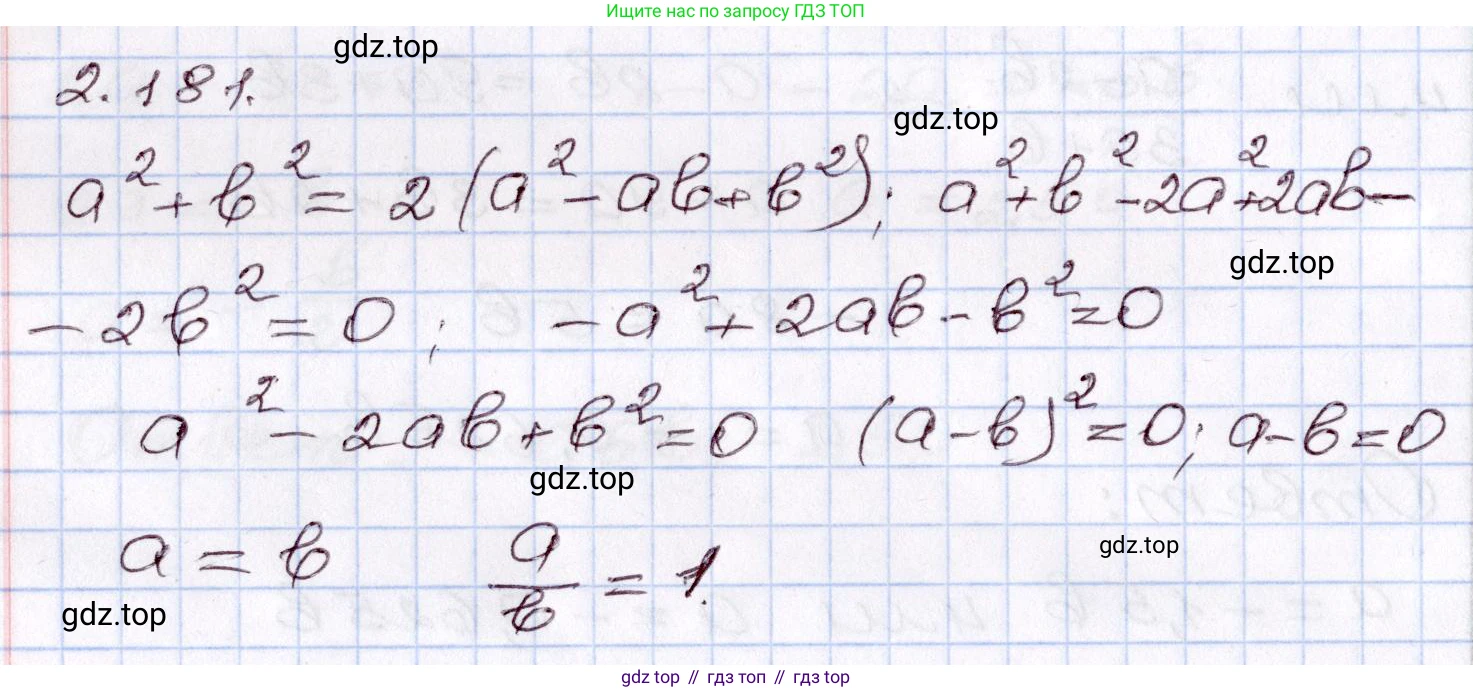 Ищите нас по запросу ГДЗ ТОП
gdz.top
2.181.
gdz.top
a²+b²=2(a²-ab+b²); a²+b²-2a²+2ab-
gdz.top
-2b²=0; -a²+2ab-b²=0
a²-2ab+b²=0 (a-b)²=0; a-b=0
gdz.top
a=b a/b=1.
gdz.top
gdz.top
gdz top // гдз топ // гдз top